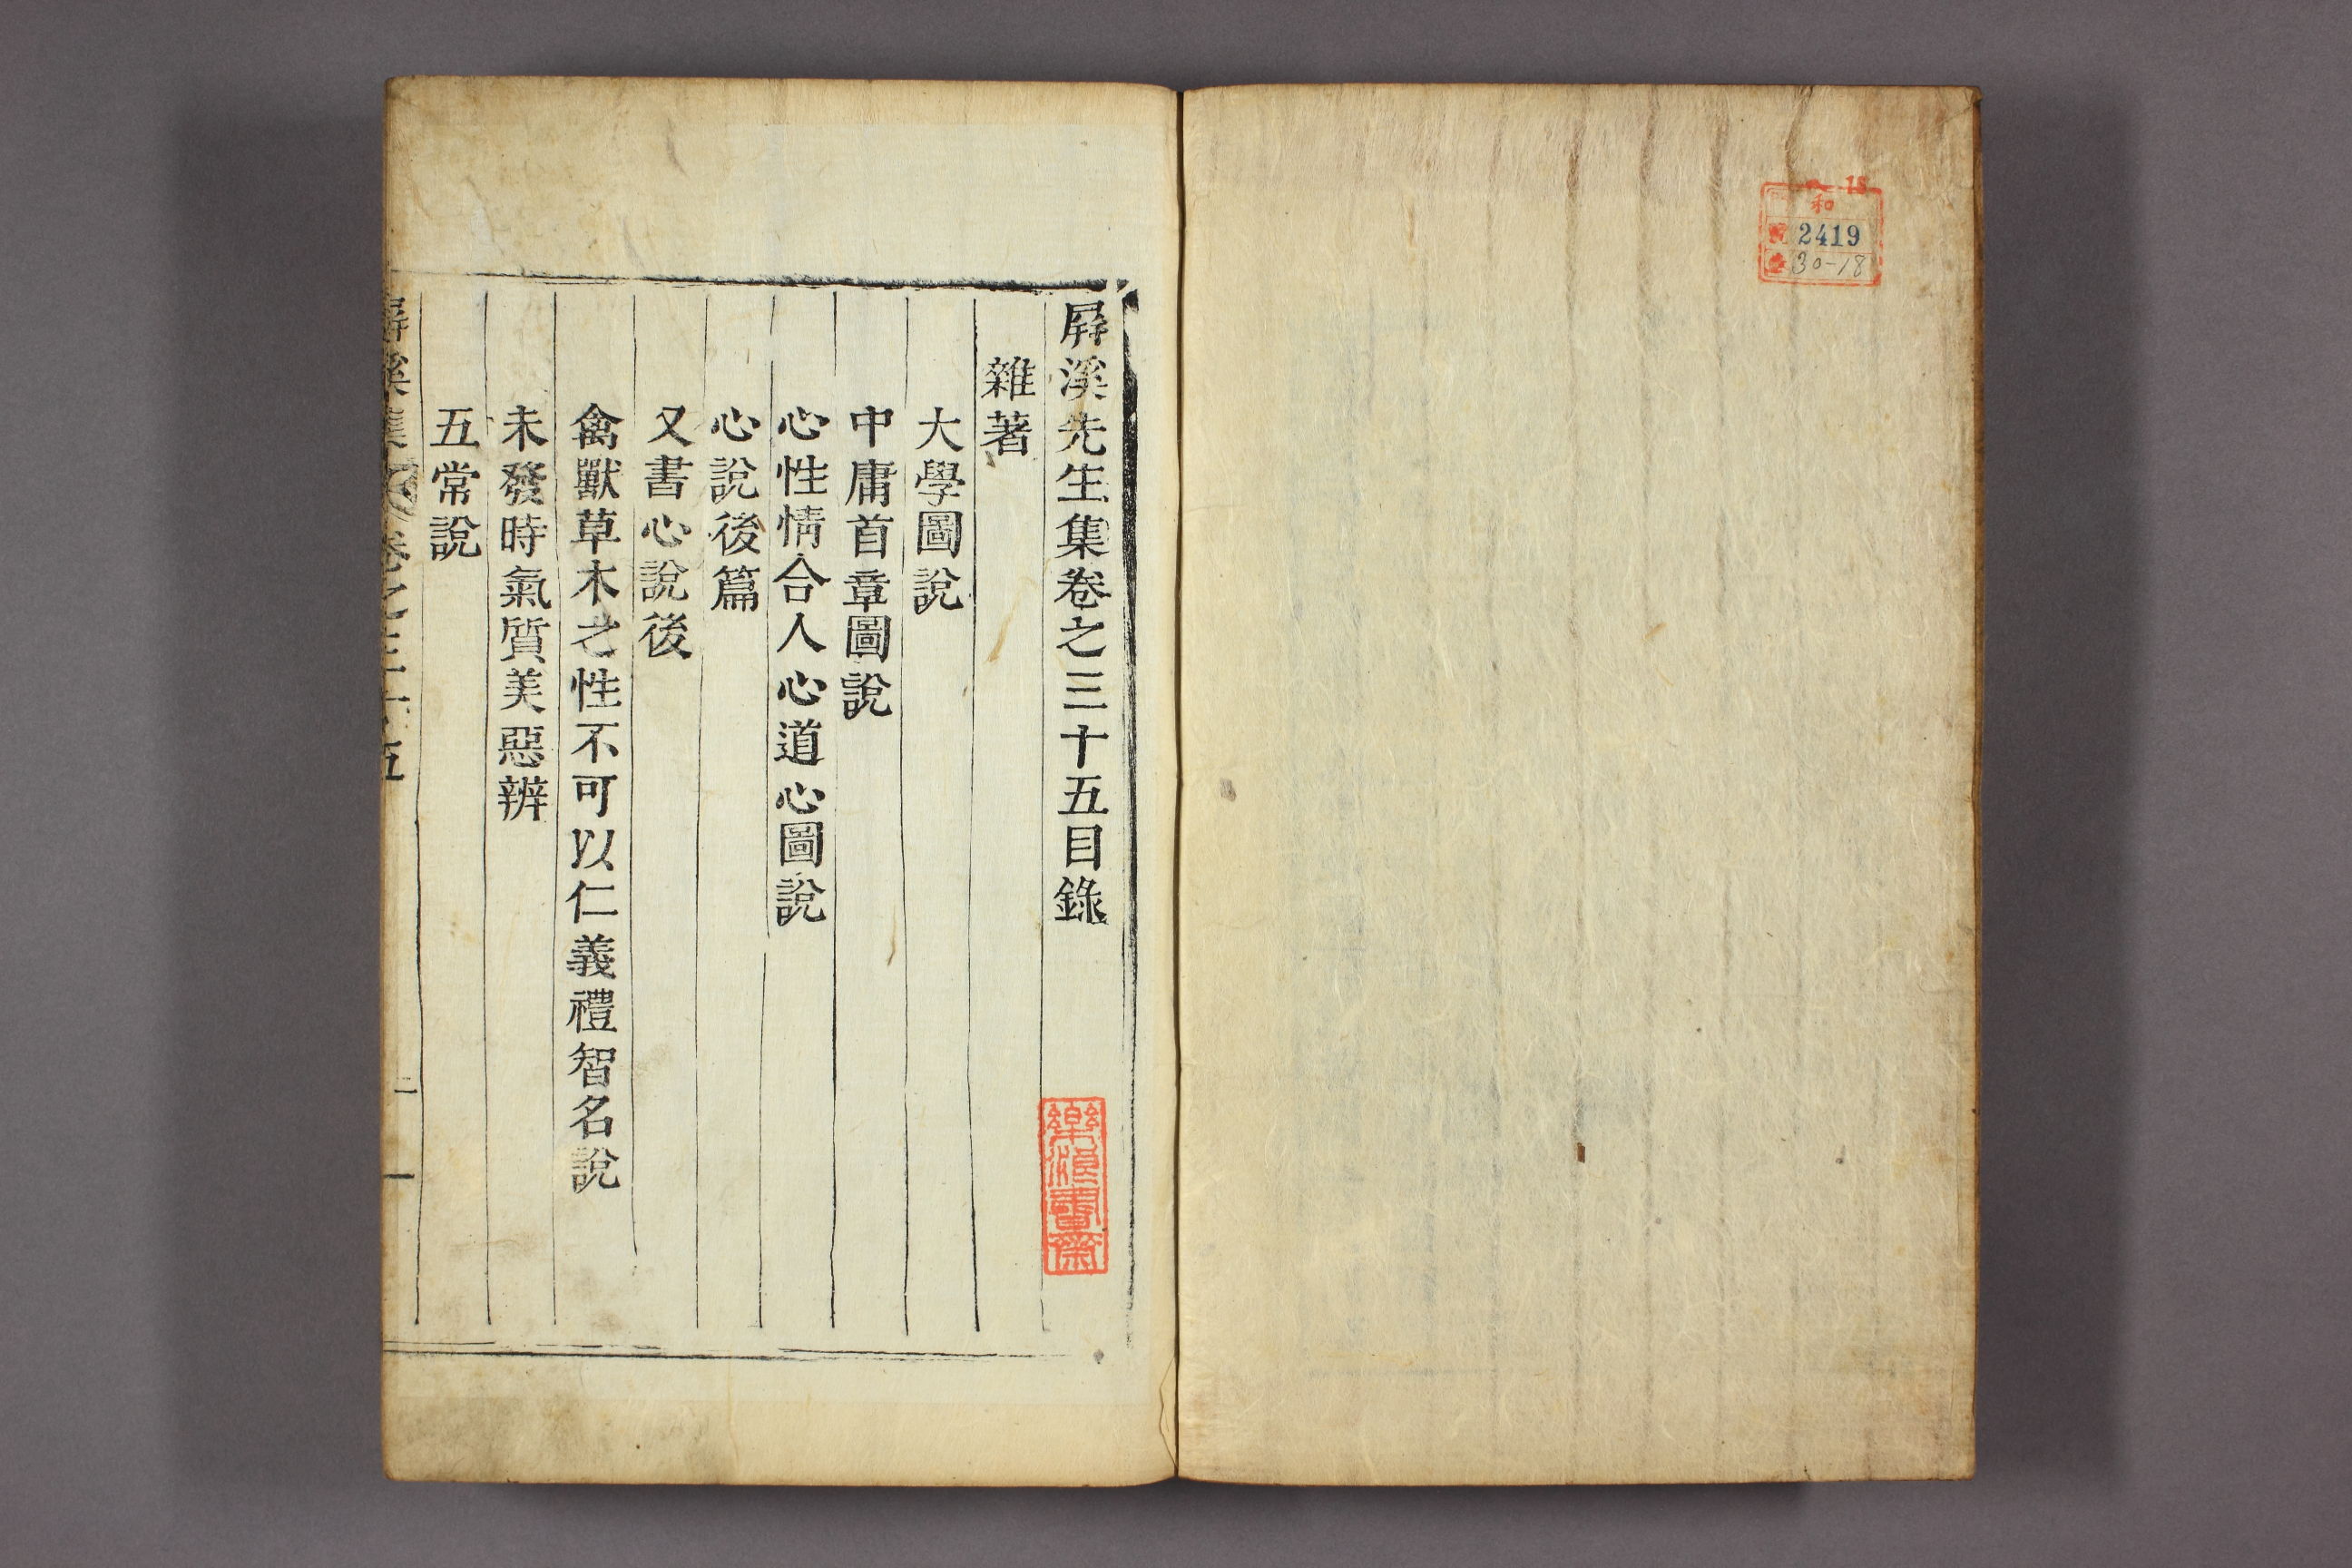 和
2419
30-18
屛溪先生集卷之三十五目錄
雜著
大學圖說
中庸首章圖說
心性情合人心道心圖說
心說後篇
又書心說後
禽獸草木之性不可以仁義禮智名說
未發時氣質美惡辨
五常說
屛溪集
卷之三十五
一